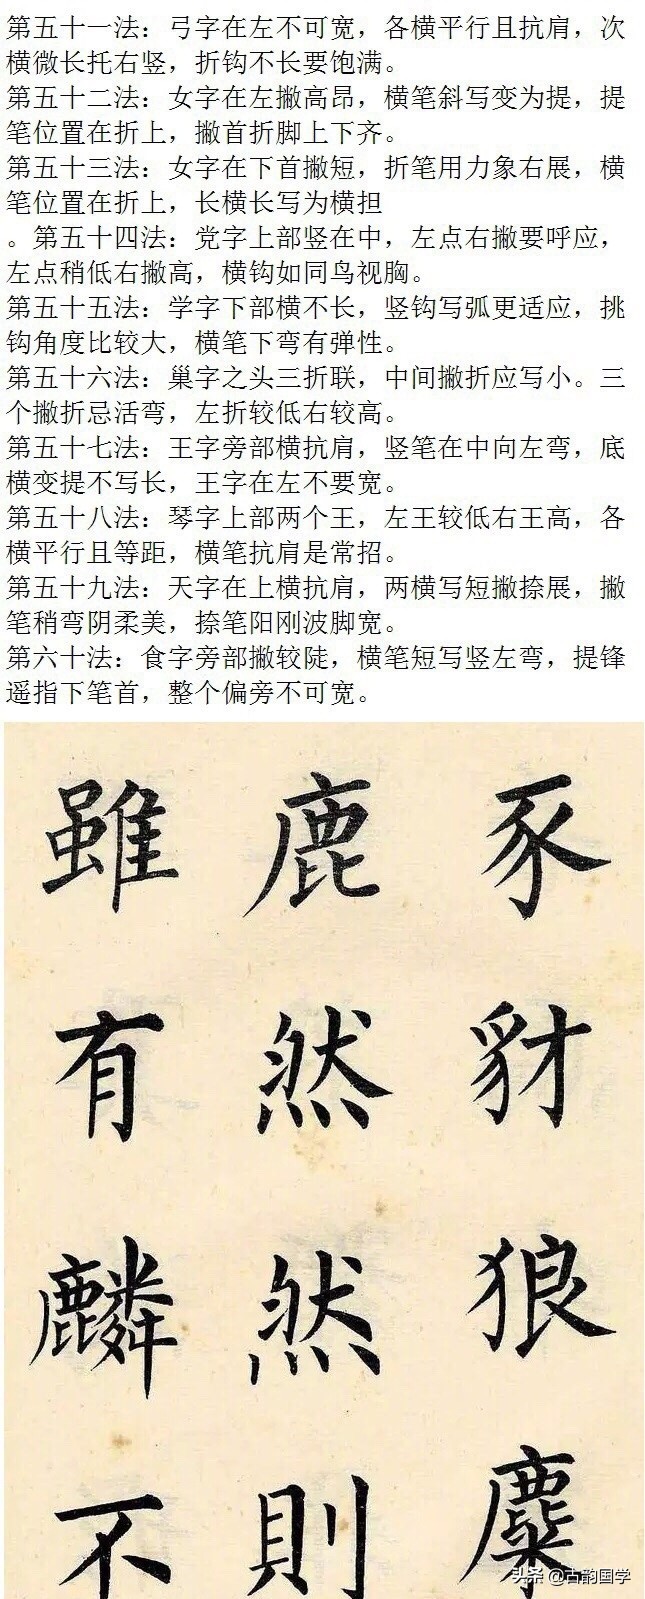 第五十一法：弓字在左不可宽，各横平行且抗肩，次
横微长托右竖，折钩不长要饱满。
第五十二法：女字在左撇高昂，横笔斜写变为提，提
笔位置在折上，撇首折脚上下齐。
第五十三法：女字在下首撇短，折笔用力象右展，横
笔位置在折上，长横长写为横担
。第五十四法：党字上部竖在中，左点右撇要呼应，
左点稍低右撇高，横钩如同鸟视胸。
第五十五法：学字下部横不长，竖钩写弧更适应，挑
钩角度比较大，横笔下弯有弹性。
第五十六法：巢字之头三折联，中间撇折应写小。三
个撇折忌活弯，左折较低右较高。
第五十七法：王字旁部横抗肩，竖笔在中向左弯，底
横变提不写长，王字在左不要宽。
第五十八法：琴字上部两个王，左王较低右王高，各
横平行且等距，横笔抗肩是常招。
第五十九法：天字在上横抗肩，两横写短撇捺展，撇
笔稍弯阴柔美，捺笔阳刚波脚宽。
第六十法：食字旁部撇较陡，横笔短写竖左弯，提锋
遥指下笔首，整个偏旁不可宽。
豕豺狼麋
鹿然然則
雖有麟不
头条 @古韵国学